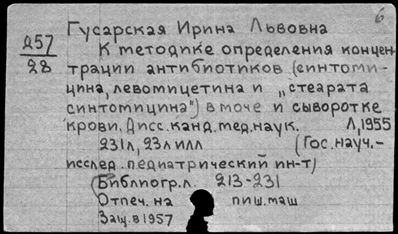 6
Гусарская Ирина Львовна
Д57
28
К методике определения концен-
трации антибиотиков (синтоми-
цина, левомицетина и „стеарата
синтомицина") в моче и сыворотке
крови. Дисс. канд. мед. наук. Л, 1955
231 л, 23 л илл (Гос. науч.-
исслед. педиатрический ин-т)
(Библиогр. л. 213-231
Отпеч. на пиш. маш
Защ. в 1957